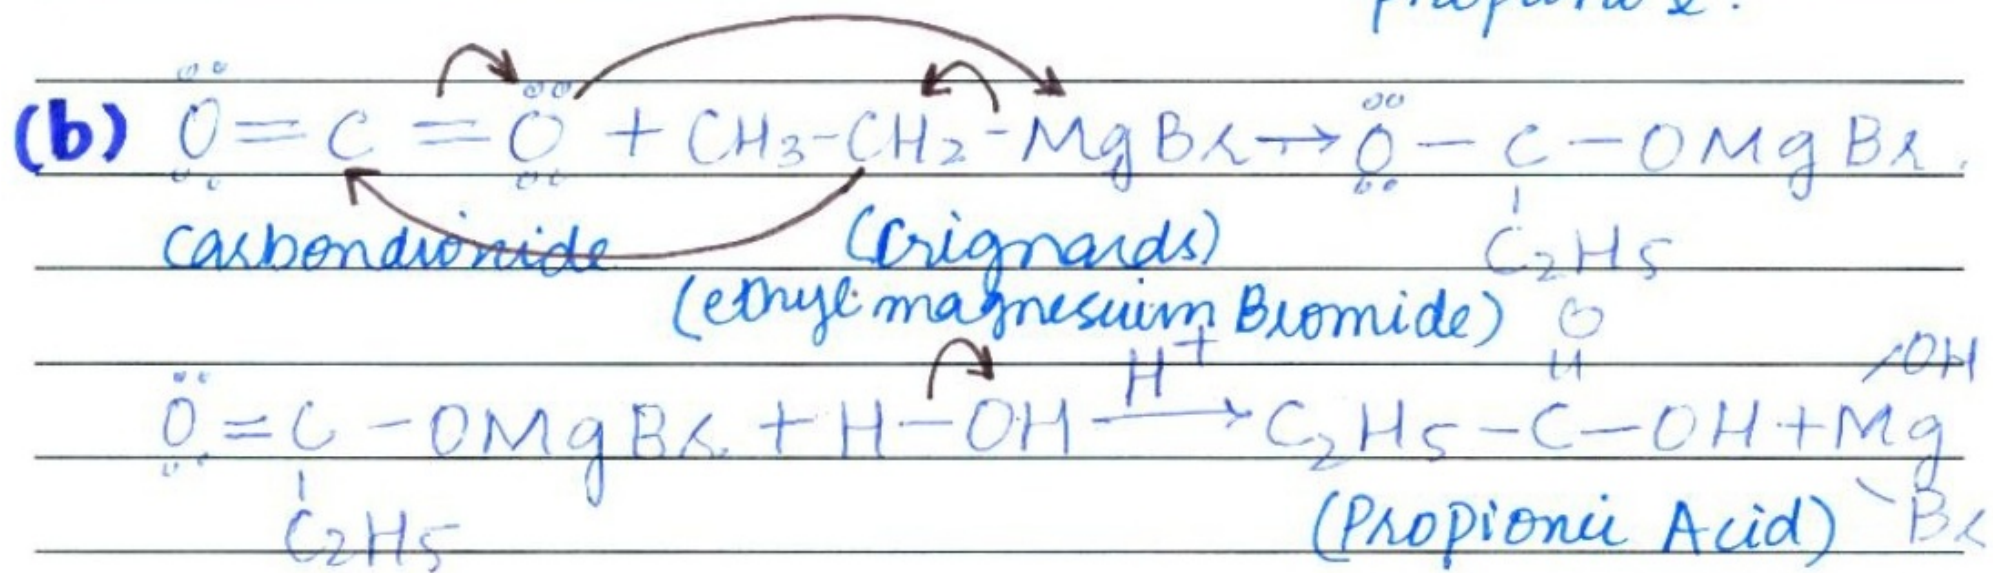 (b) O = C = O + CH3-CH2-MgBr → O - C - OMgBr.
C2H5
carbondioxide (Grignards)
(ethyl magnesium Bromide)
O = C - OMgBr + H-OH H+ → C2H5-C-OH + Mg
O
OH
Br
C2H5
(Propionic Acid)